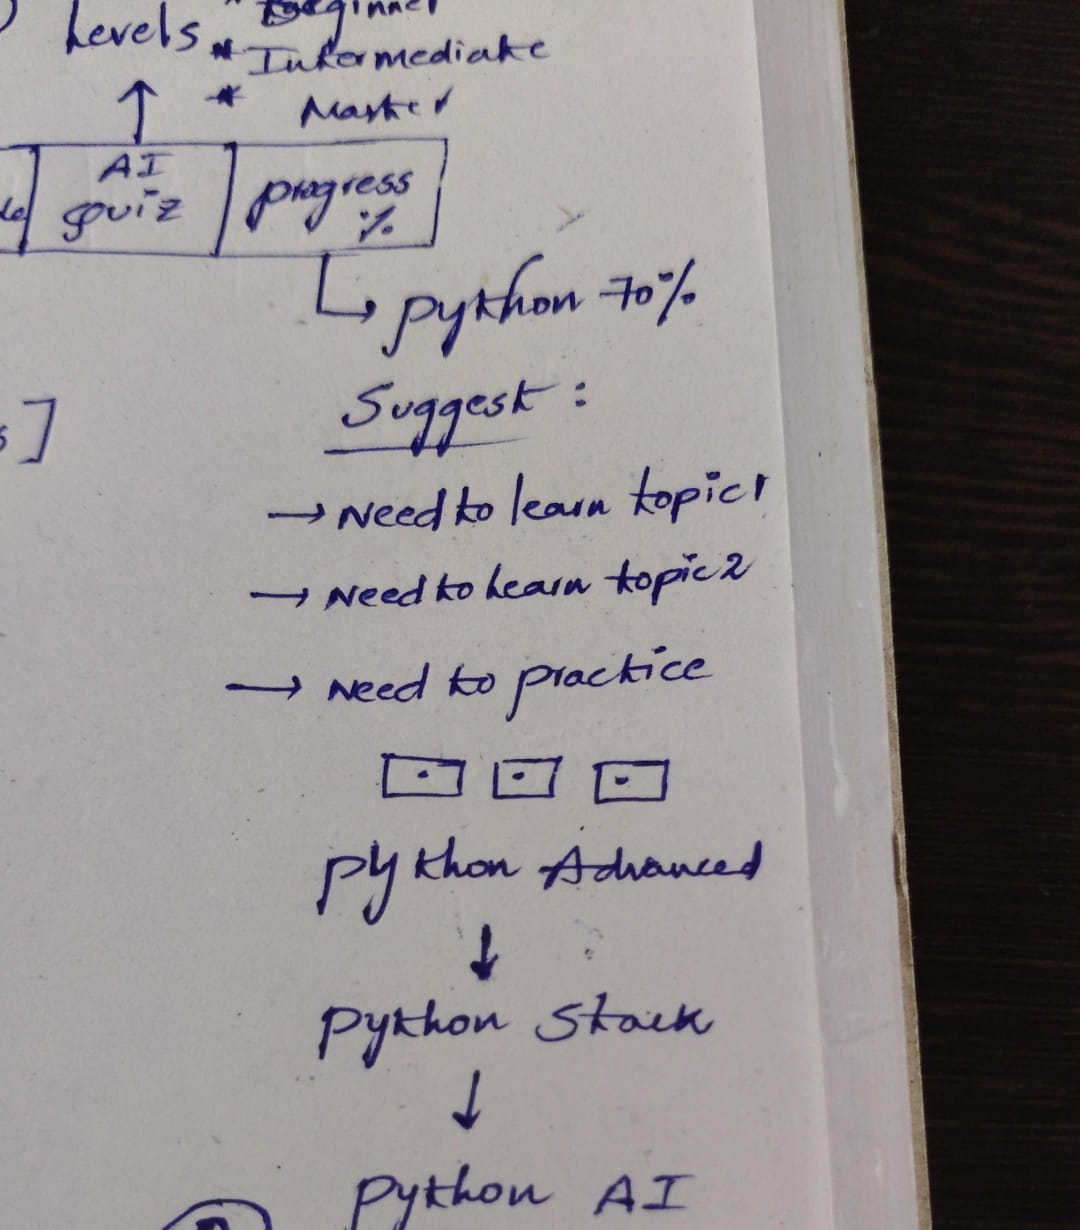 Levels * Beginner
* Intermediate
* Master
AI quiz
progress %
python 70%
Suggest :
→ Need to learn topic 1
→ Need to learn topic 2
→ Need to practice
python Advanced
↓
python Stack
↓
python AI